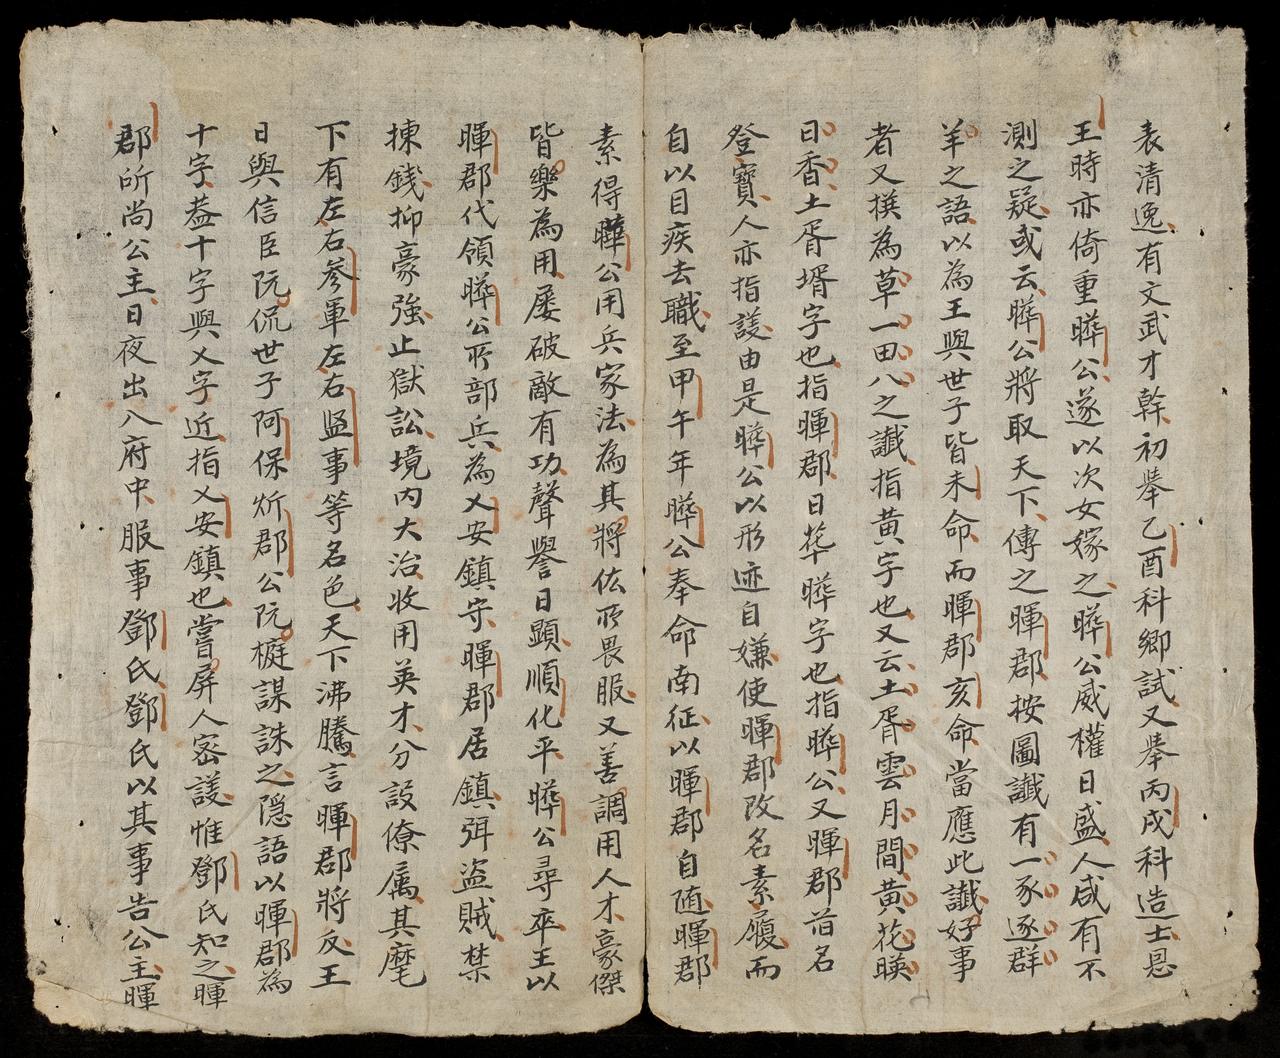 表清逸有文武才幹初舉乙酉科鄉試又舉丙戌科造士恩
王時亦倚重曄公遂以次女嫁之曄公威權日盛人咸有不
測之疑或云曄公將取天下傳之暉郡按圖讖有一豕逐群
羊之語以為王與世子皆未命而暉郡亥命當應此讖好事
者又撰為草一田八之讖指黄字也又云土胥雲月間黄花暎
日香土胥壻字也指暉郡日花華曄字也指曄公又暉郡旨名
登寶人亦指議由是曄公以形迹自嫌使暉郡改名素履而
自以目疾去職至甲午年曄公奉命南征以暉郡自随暉郡
素得曄公用兵家法為其將佐所畏服又善調用人才豪傑
皆樂為用屡破敵有功聲譽日顕順化平曄公尋卒王以
暉郡代領曄公所部兵為乂安鎮守暉郡居鎮弭盗賊禁
揀錢抑豪強止獄訟境内大治收用英才分設僚属其麾
下有左右参軍左右監事等名色天下沸騰言暉郡將反王
日與信臣阮侃世子阿保炘郡公阮𣖖謀誅之隠語以暉郡為
十字葢十字與乂字近指乂安鎮也嘗屏人密議惟鄧氏知之暉
郡所尚公主日夜出入府中服事鄧氏鄧氏以其事告公主暉